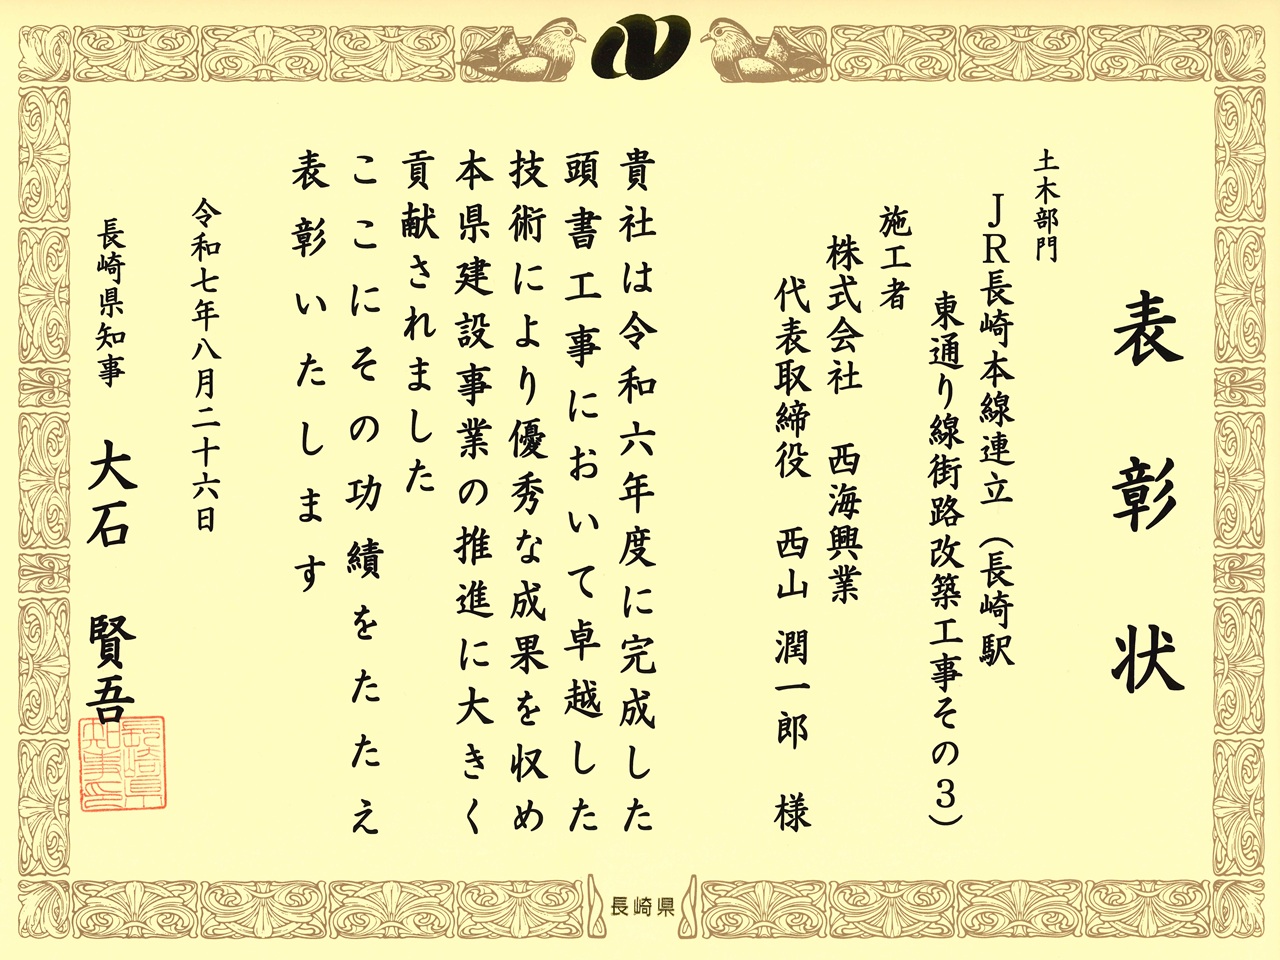 表彰状
土木部門
JR長崎本線連立（長崎駅
東通り線街路改築工事その3）
施工者
株式会社　西海興業
代表取締役　西山　潤一郎　様
貴社は令和六年度に完成した
頭書工事において卓越した
技術により優秀な成果を収め
本県建設事業の推進に大きく
貢献されました
ここにその功績をたたえ
表彰いたします
令和七年八月二十六日
長崎県知事　大石　賢吾
長崎県知事印
長崎県